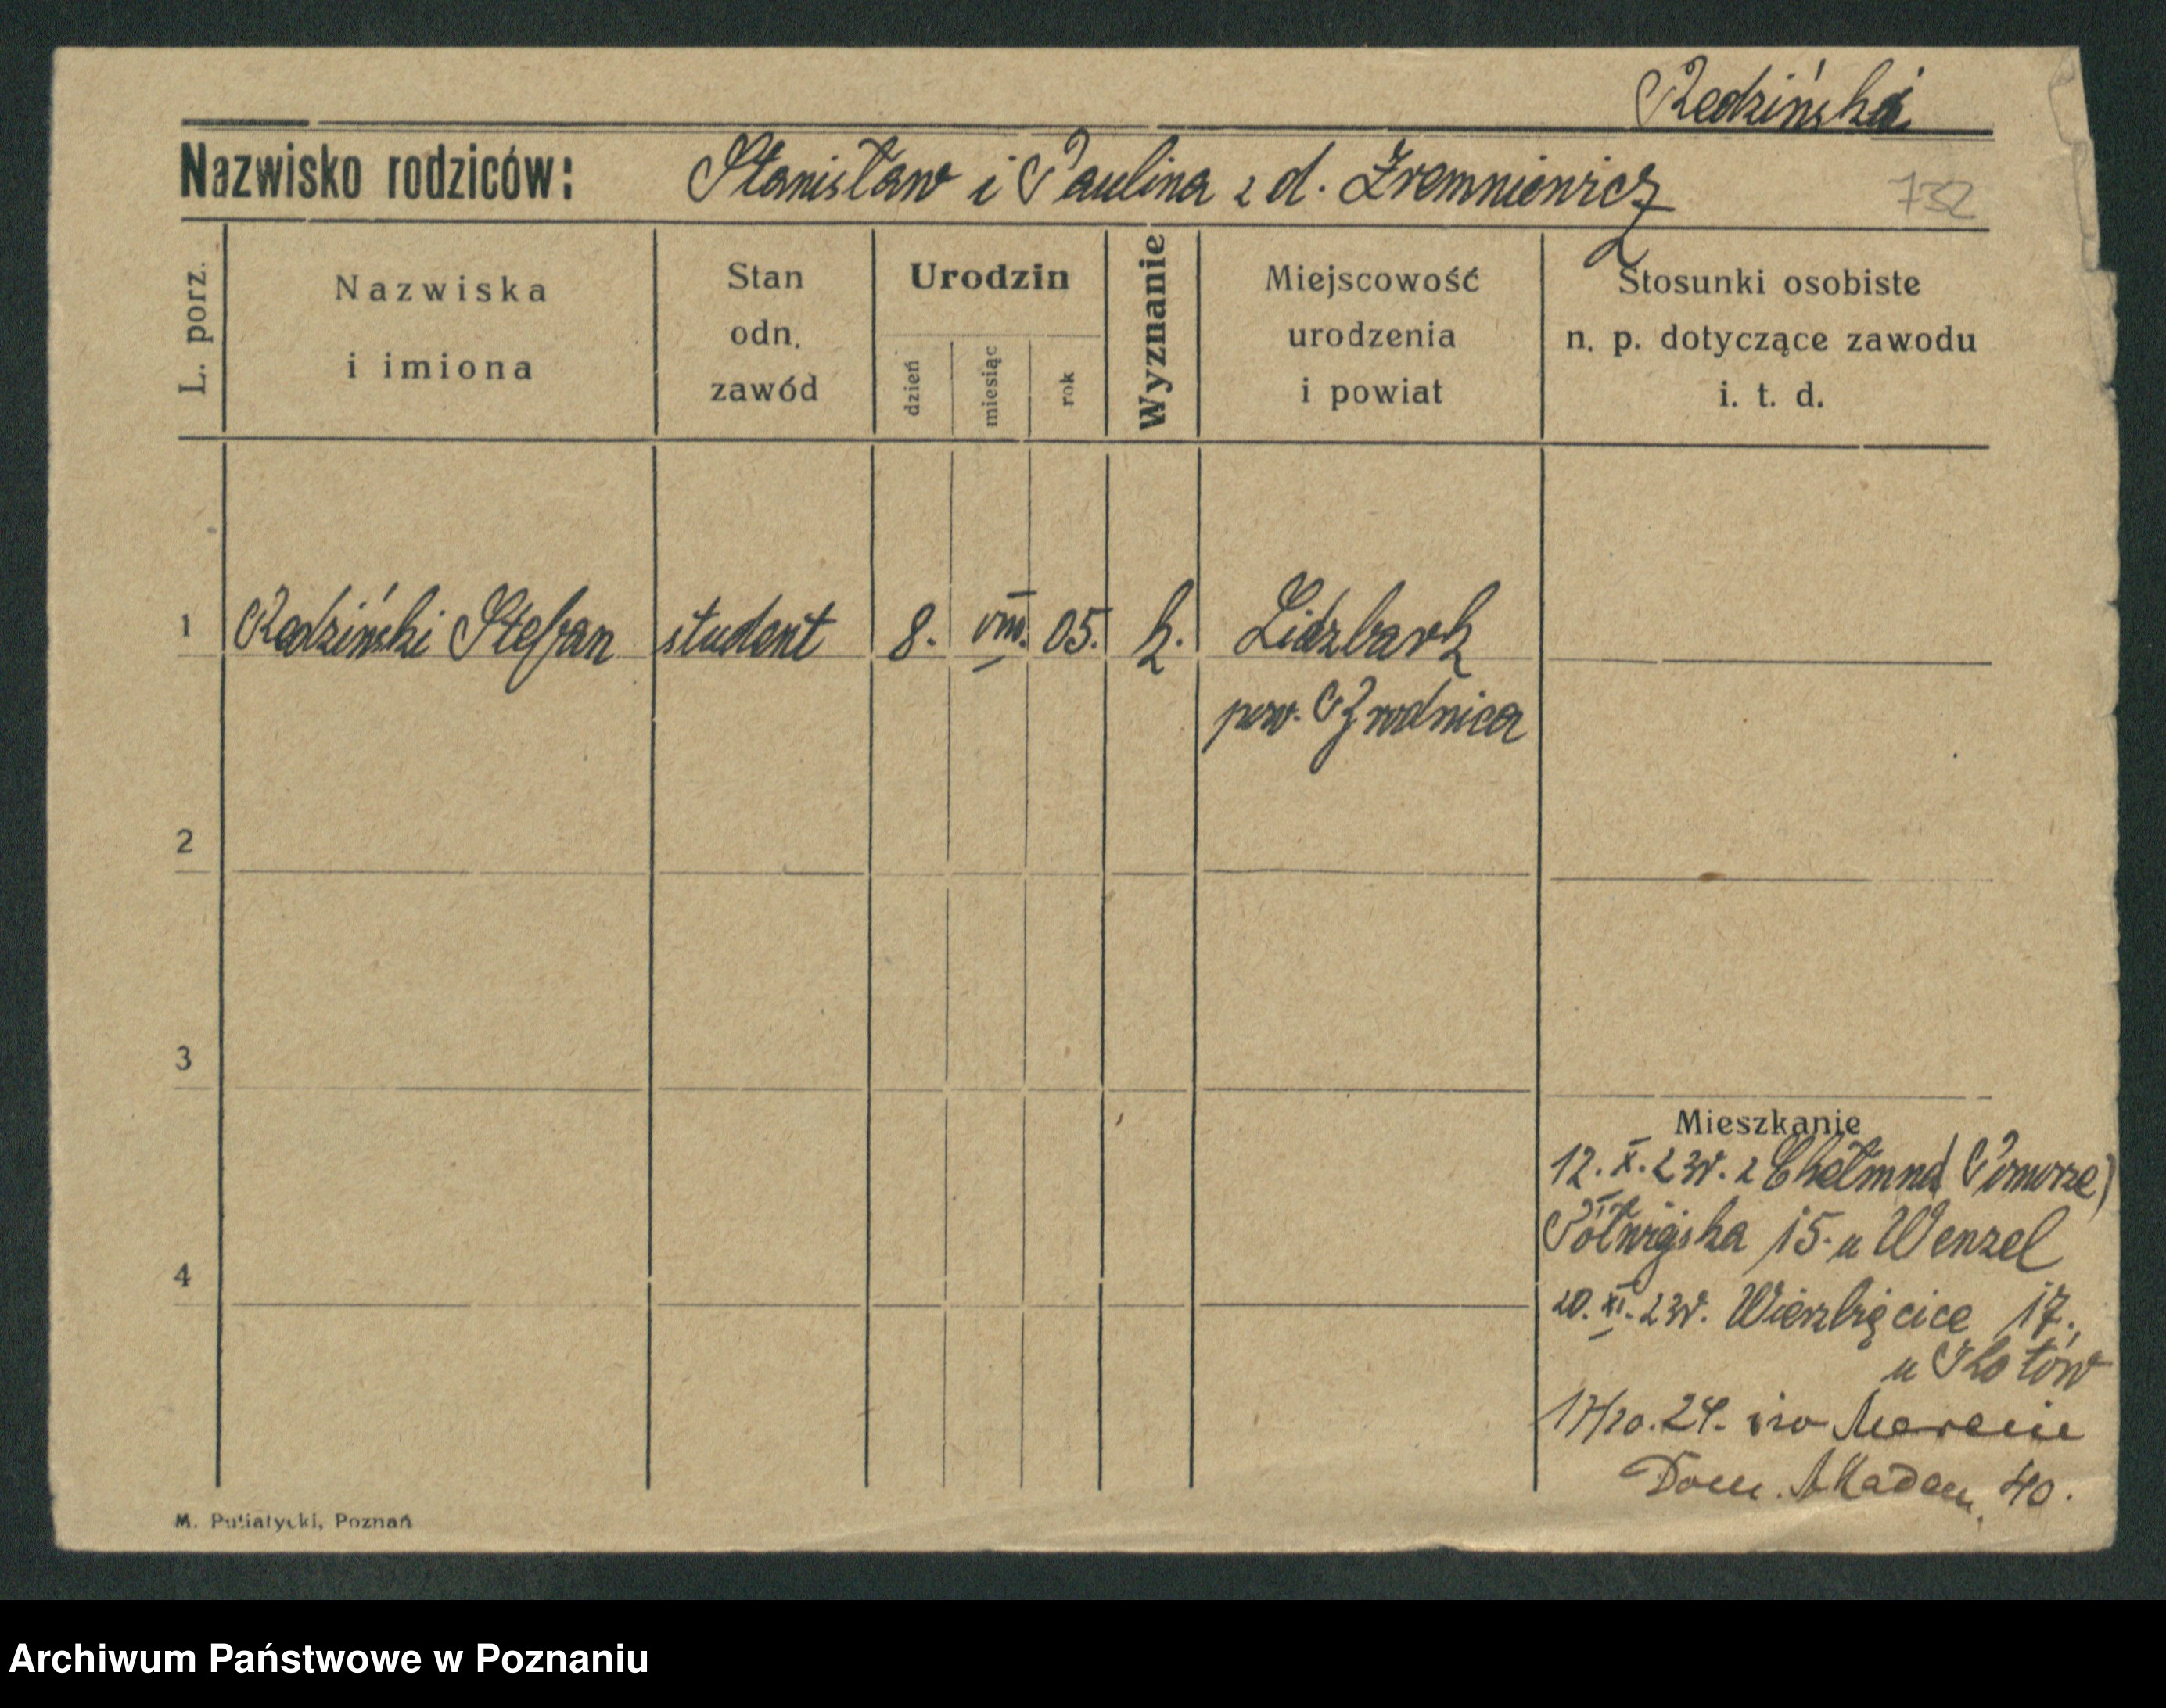 Redziński
Nazwisko rodziców: Stanisław i Paulina z d. Zremniewicz
732
L. porz.
Nazwiska
i imiona
Stan
odn.
zawód
Urodzin
dzień
miesiąc
rok
Wyznanie
Miejscowość
urodzenia
i powiat
Stosunki osobiste
n. p. dotyczące zawodu
i. t. d.
1 Redziński Stefan student 8. VIII. 05. k. Lidzbark
pow. Brodnica
2
3
Mieszkanie
12. X. 23r. z Chełmna (Pomorze)
Półwiejska 15. u Wenzel
4
20. XI. 23r. Wierzbięcice 17.
u
17/10. 24. św Marcin
Dom. Akadem. 40.
M. Putiatycki, Poznań
Archiwum Państwowe w Poznaniu